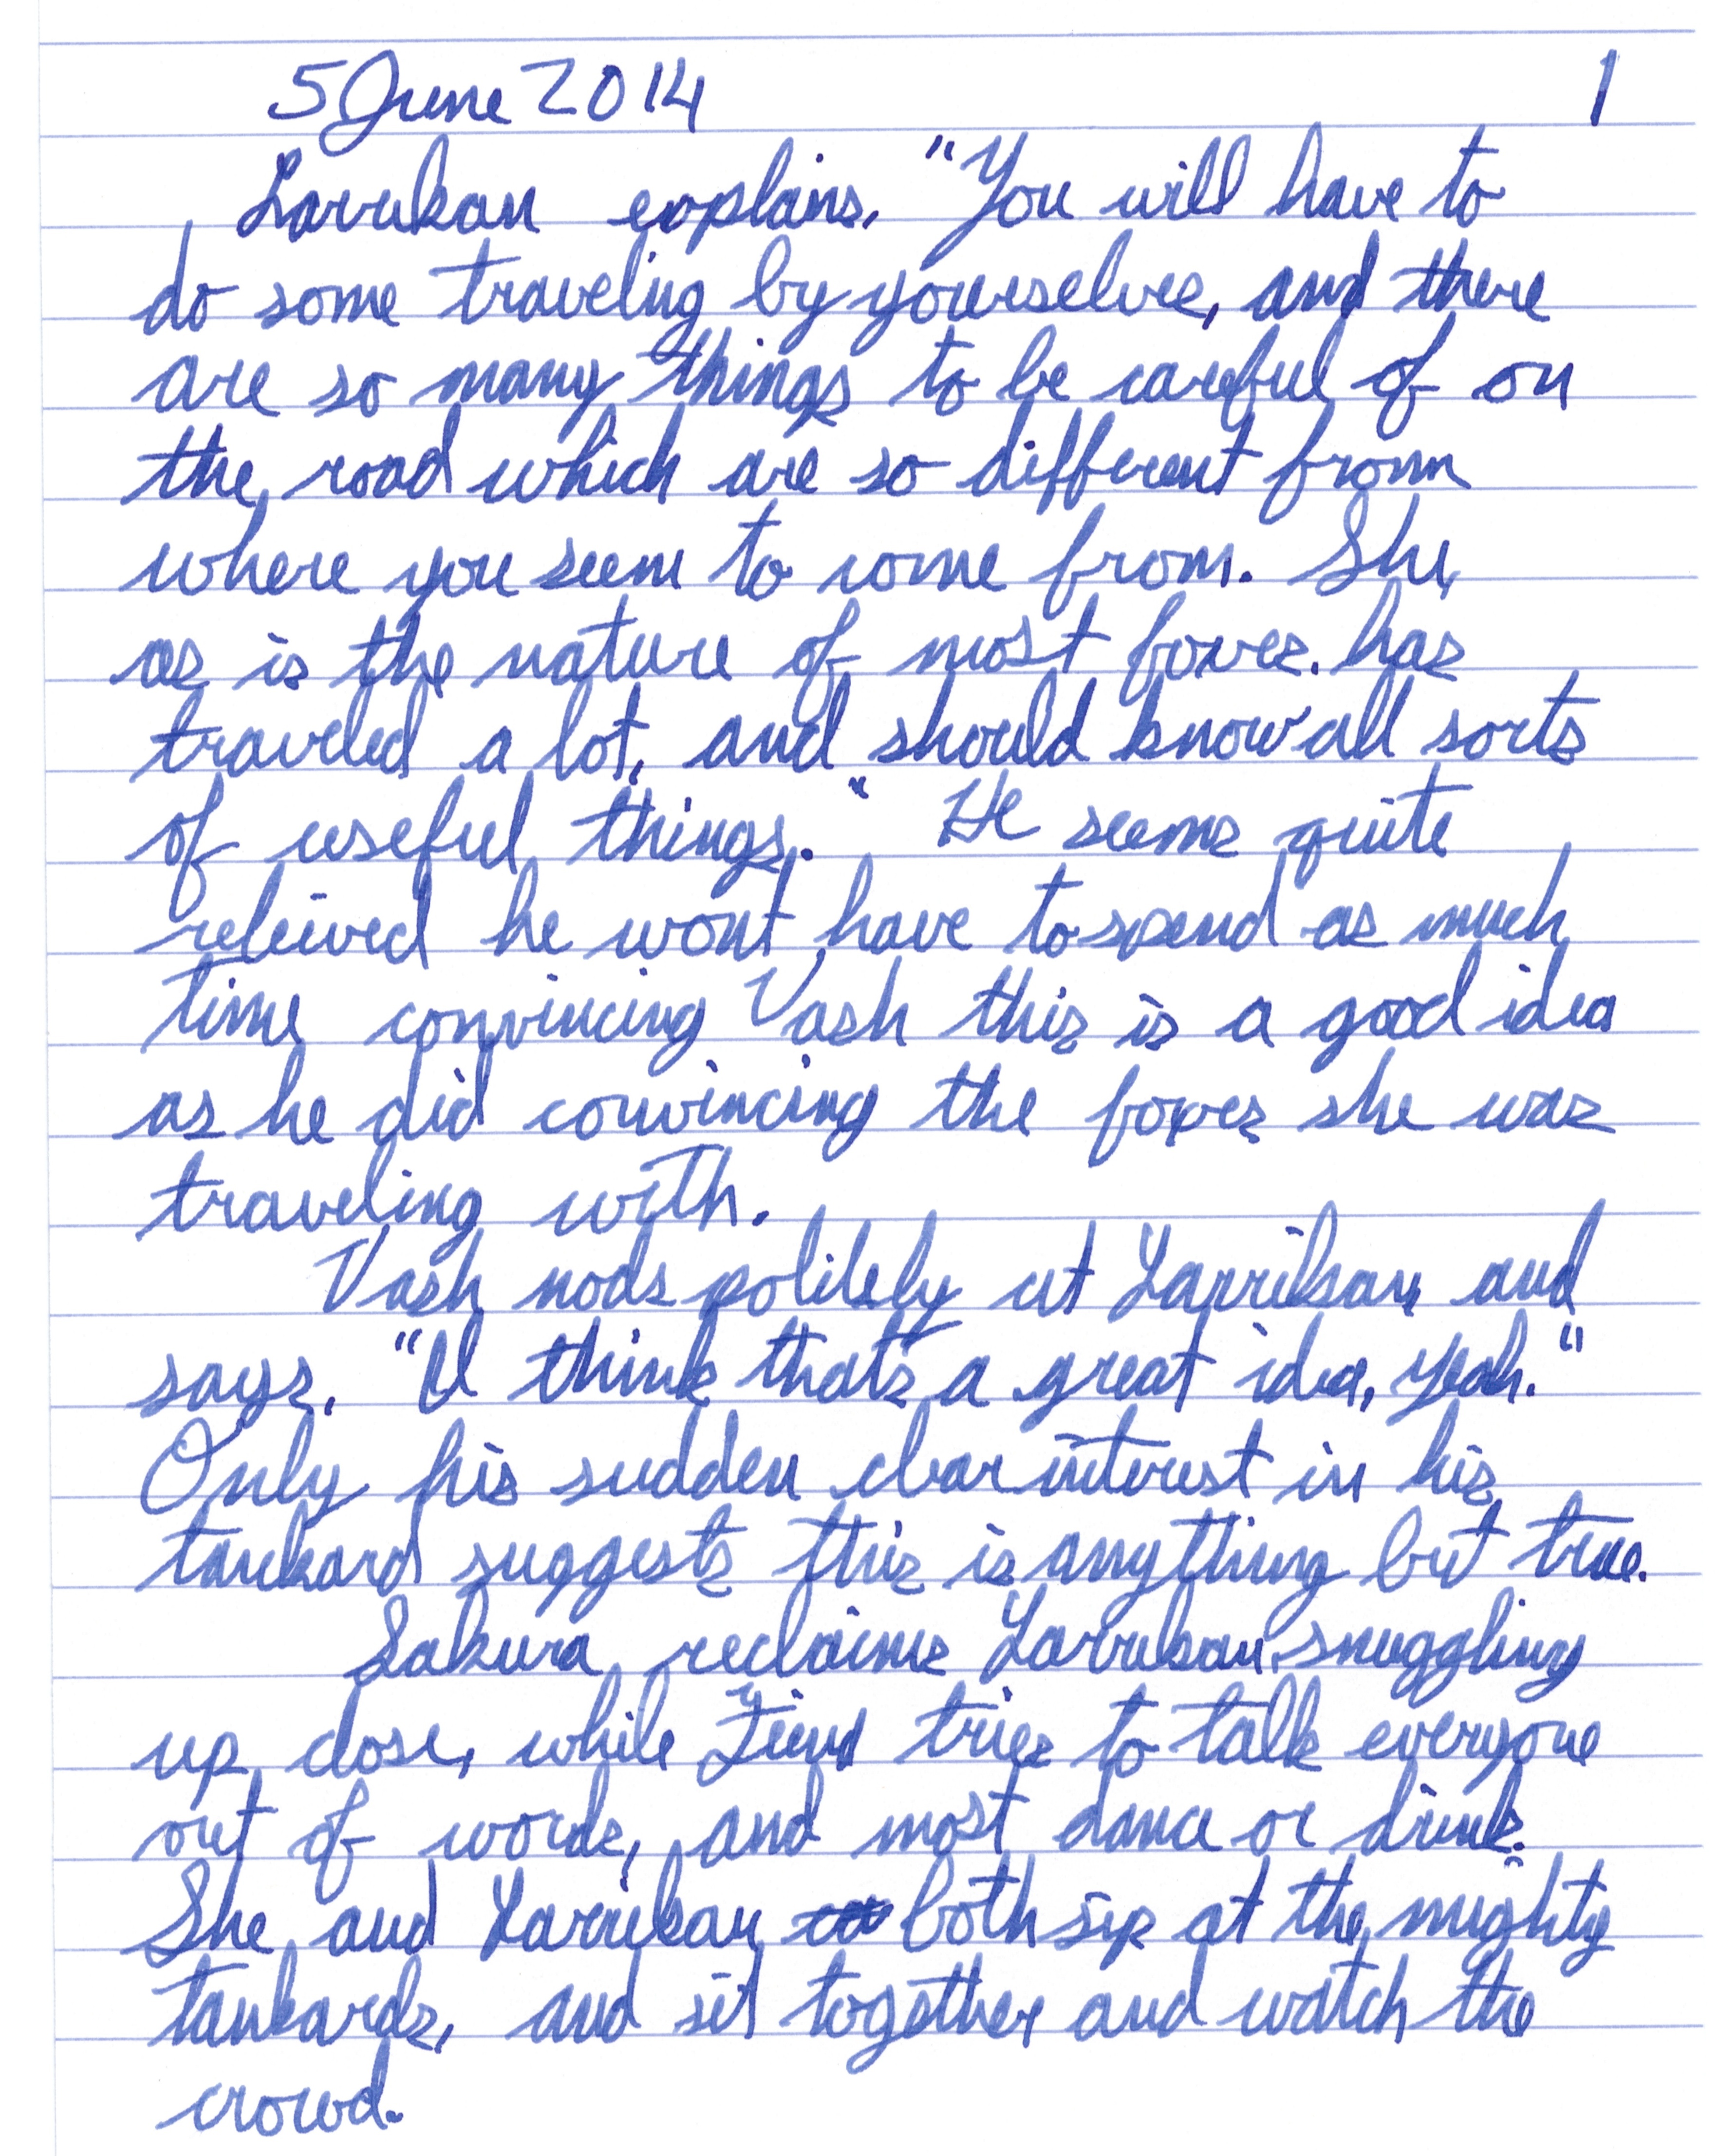 5 June 2014 1
Larrikan explains, "You will have to
do some traveling by yourselves, and there
are so many things to be careful of on
the road which are so different from
where you seem to come from. She,
as is the nature of most foxes, has
traveled a lot, and should know all sorts
of useful things." He seems quite
releived he wont have to spend as much
time convincing Vash this is a good idea
as he did convincing the foxes she was
traveling with.
Vash nods politely at Larrikan, and
says, "I think that's a great idea, yeah."
Only his sudden clear interest in his
tankard suggests this is anything but true.
Sakura reclaims Larrikan, snuggling
up close, while tries to talk everyone
out of words, and most dance or drink.
She and Larrikan both sip at the mighty
tankards, and sit together and watch the
crowd.